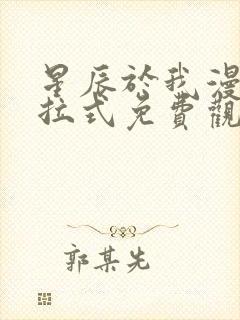 星辰於我漫
拉式免費觀
郭某先